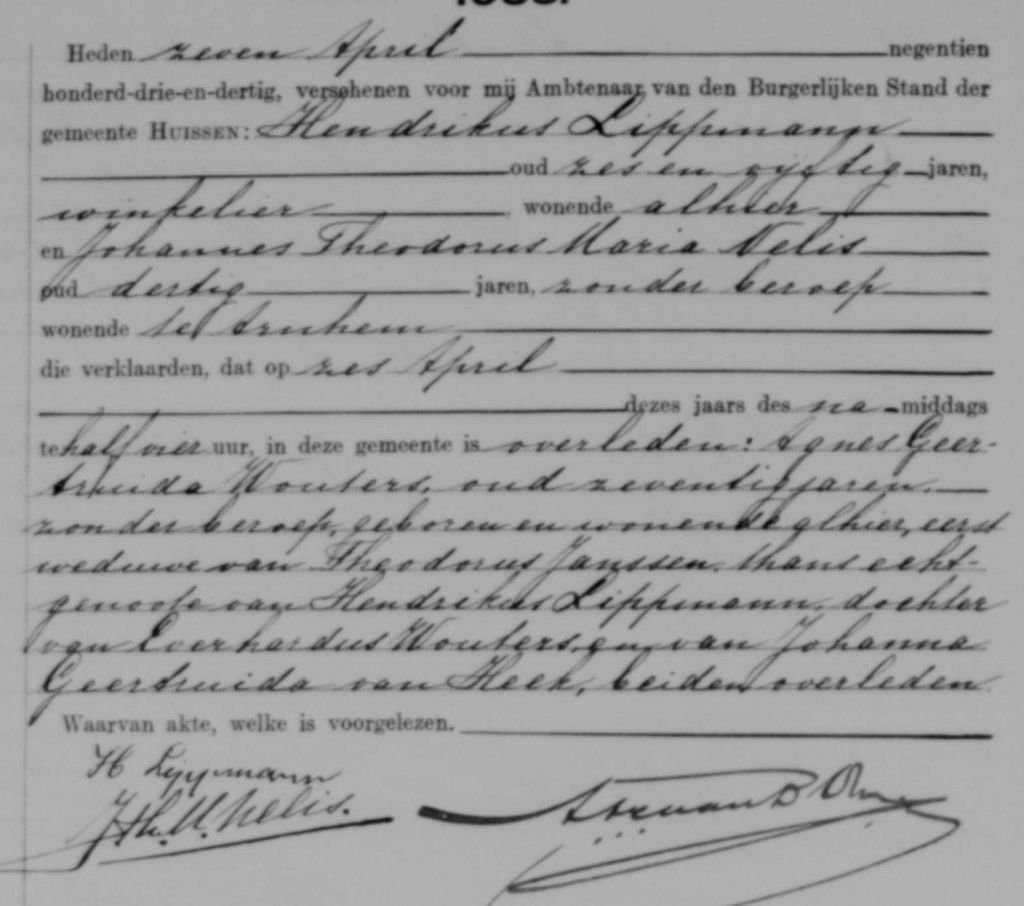 Heden zeven April negentien
honderd-drie-en-dertig, verschenen voor mij Ambtenaar van den Burgerlijken Stand der
gemeente HUISSEN: Hendrikus Lippmann
oud zes en vijftig jaren,
winkelier, wonende alhier
en Johannes Theodorus Maria Nelis
oud dertig jaren, zonder beroep
wonende te Arnhem
die verklaarden, dat op zes April
dezes jaars des na-middags
te half vier uur, in deze gemeente is overleden: Agnes Geer-
truida Wouters, oud zeventig jaren,
zonder beroep, geboren en wonende alhier, eerst
weduwe van Theodorus Janssen, thans echt-
genoote van Hendrikus Lippmann, dochter
van Everhardus Wouters, en van Johanna
Geertruida van Heek, beiden overleden.
Waarvan akte, welke is voorgelezen.
H Lippmann
J.Th.M. Nelis.